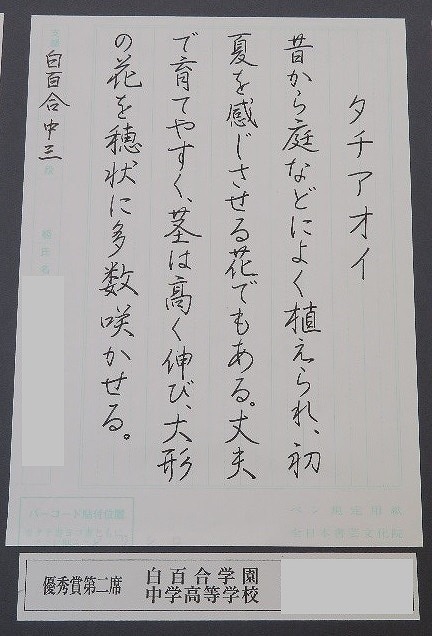 タチアオイ
昔から庭などによく植えられ、初
夏を感じさせる花でもある。丈夫
で育てやすく、茎は高く伸び、大形
の花を穂状に多数咲かせる。
白百合中三
氏名
バーコード貼付位置
ペン検定用紙
全日本書芸文化院
優秀賞第二席
白百合学園
中学高等学校